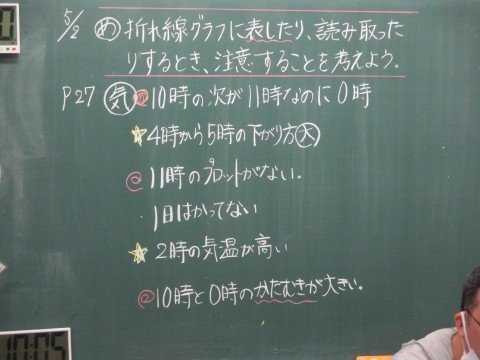 5/2 め 折れ線グラフに表したり、読み取った
りするとき、注意することを考えよう。
P27 気 @10時の次が11時なのに0時
★4時から5時の下がり方大
@11時のプロットがない。
・1日はかってない
★2時の気温が高い
@10時と0時のかたむきが大きい。
10:05